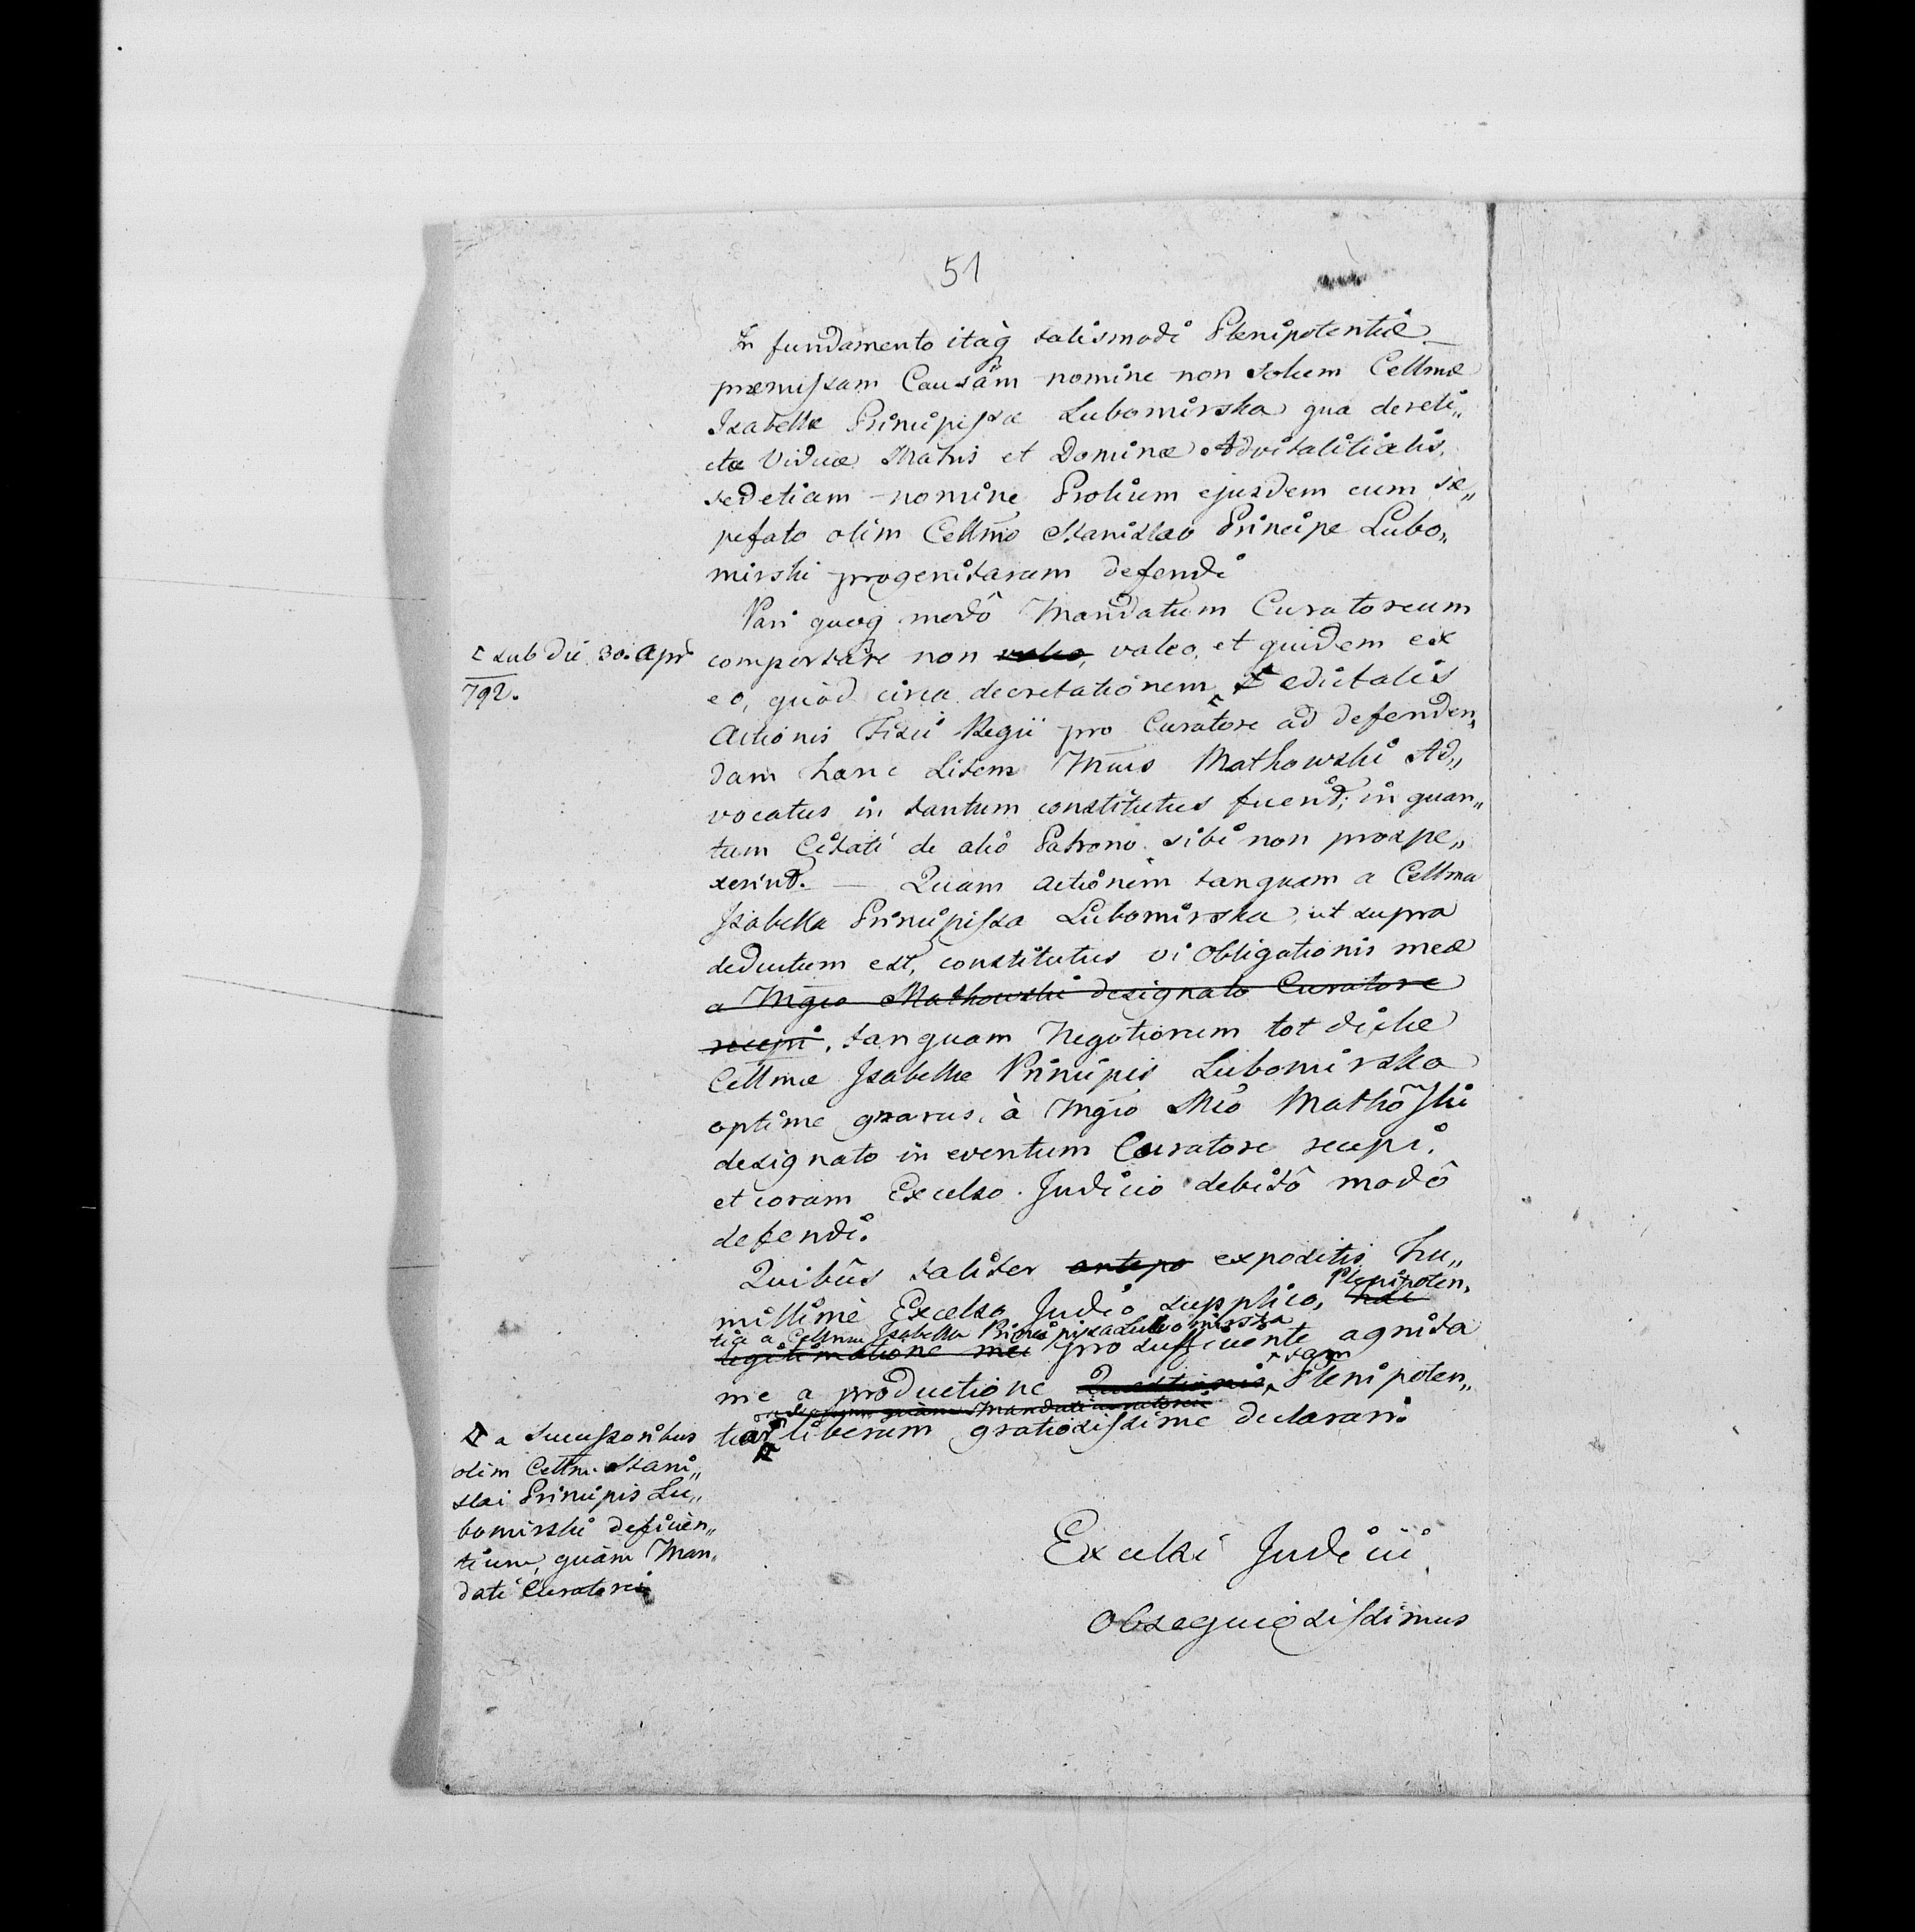 51
In fundamento itaq talismodi Plenipotentiæ
præmissam Causam nomine non solum Cellmæ
Isabellæ Principissæ Lubomirska qua dereli„
ctæ Viduæ Matris et Dominæ Advitalitialis,
sed etiam nomine Prolium ejusdem cum sæ„
pefato olim Cellmo Stanislao Principe Lubo„
mirski progenitarum defendi
Pari quoq modô Mandatum Curatoreum
comportare non valeo, valeo, et quidem ex
eo, quòd circa decretationem edictalis
Actionis Fisci Regii pro Curatore ad defenden„
dam hanc Litem Mcus Mathowski Ad„
vocatus in tantum constitutus fuerit; in quan„
tum Citati de aliô Patrono sibi non prospe„
xerint. — Quam actionem tanquam a Cellma
Isabella Principissa Lubomirska, ut supra
deductum est, constitutus vi obligationis meæ
a Mgco Mathowski designato Curatore
recepi, tanquam Negotiorum tot dictæ
Cellmæ Isabellæ Principis Lubomirska
optime gnarus, à Mgco Mathoski
designato in eventum Curatore recepi,
et coram Excelso Judicio debitô modô
defendi.
Quibus taliter antepo expositis hu„
millimè Excelso Judio supplico, Plenipoten„
tia a Cellma Isabella Principissa Lubomirska
legitimatione mei pro sufficiente agnita
me a productione tam Plenipoten„
quàm Mandati curatorei
tiæ liberum gratiosissime declarari.
Excelsi Judicii
Obsequiosissimus
sub die 30. Apr
792.
a Successoribus
olim Cellmi Stani„
slai Principis Lu„
bomirski deficien„
tium, quàm Man„
dati Curatorei